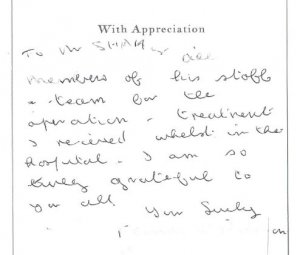 With Appreciation
To Mr SHAH &
members of his staff
& team for the
operation & treatment
I received whilst in the
hospital - I am so
truly grateful to
you all.